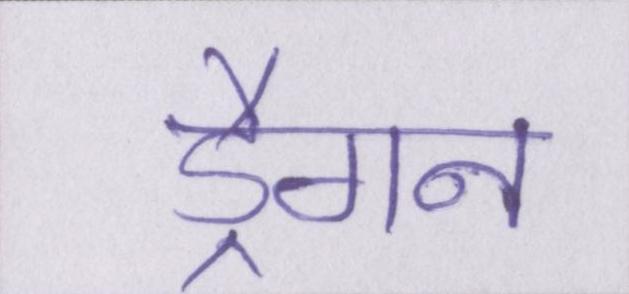 ड्रैगन